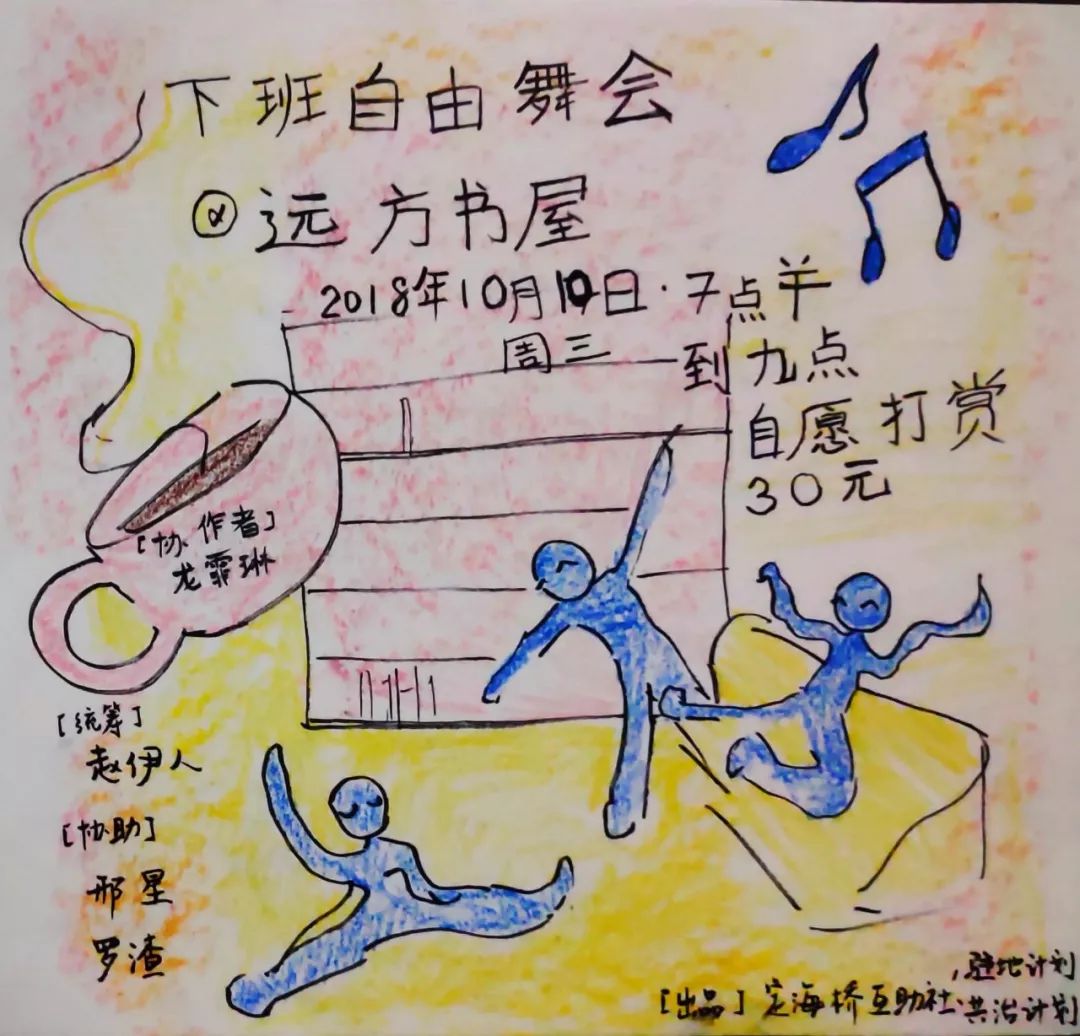 下班自由舞会
@远方书屋
2018年10月10日·7点半
周三
到九点
自愿打赏
30元
[协作者]
龙霏琳
[统筹]
赵伊人
[协助]
邢星
罗渣
,驻地计划
[出品]定海桥互助社·共治计划